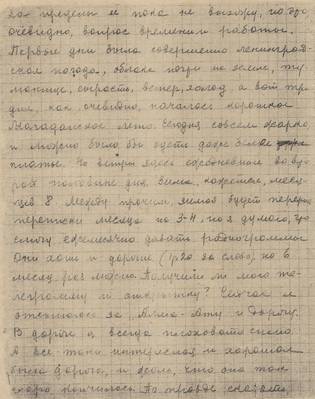 за пределы я пока не выхожу, но это
очевидно, вопрос времени и работы.
Первые дни была совершенно ленинград-
ская погода, облака почти на земле, ту-
манище, сырость, ветер, холод а вот три
дня, как, очевидно, началось хорошее
Магаданское лето. Сегодня совсем жарко
и можно было бы одеть даже белое
платье. Но ветры здесь обыкновенно во вто-
рой половине дня. Зима, кажется, меся-
цев 8. Между прочим, зимой будет перерыв
переписки месяца на 3-4, но я думаю, что
смогу ежемесячно давать радиограммы
Они хоть и дороги (1р20 за слово), но в
месяц раз можно. Получили ли мою те-
леграмму и открытку? Сейчас я
отсыпаюсь за Алма-Ату и дорогу.
В дороге я всегда плоховато спала.
А все таки интересная и хорошая
была дорога, и жаль, что она так
скоро кончилась. По правде сказать,